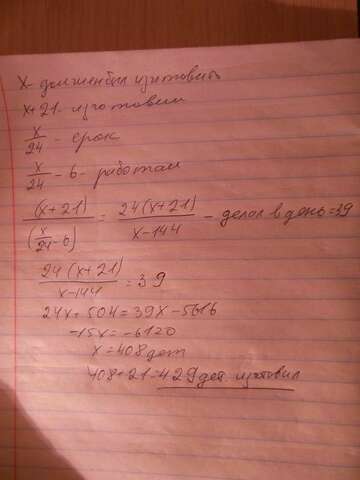 x- должен был изготовить
x+21- изготовил
x/24 - срок
x/24 - 6 - работал
(x+21)/(x/24-6) = 24(x+21)/x-144 - делал в день=39
24(x+21)/x-144 = 39
24x+504=39x-5616
-15x=-6120
x=408 дет
408+21=429 дет. изготовил